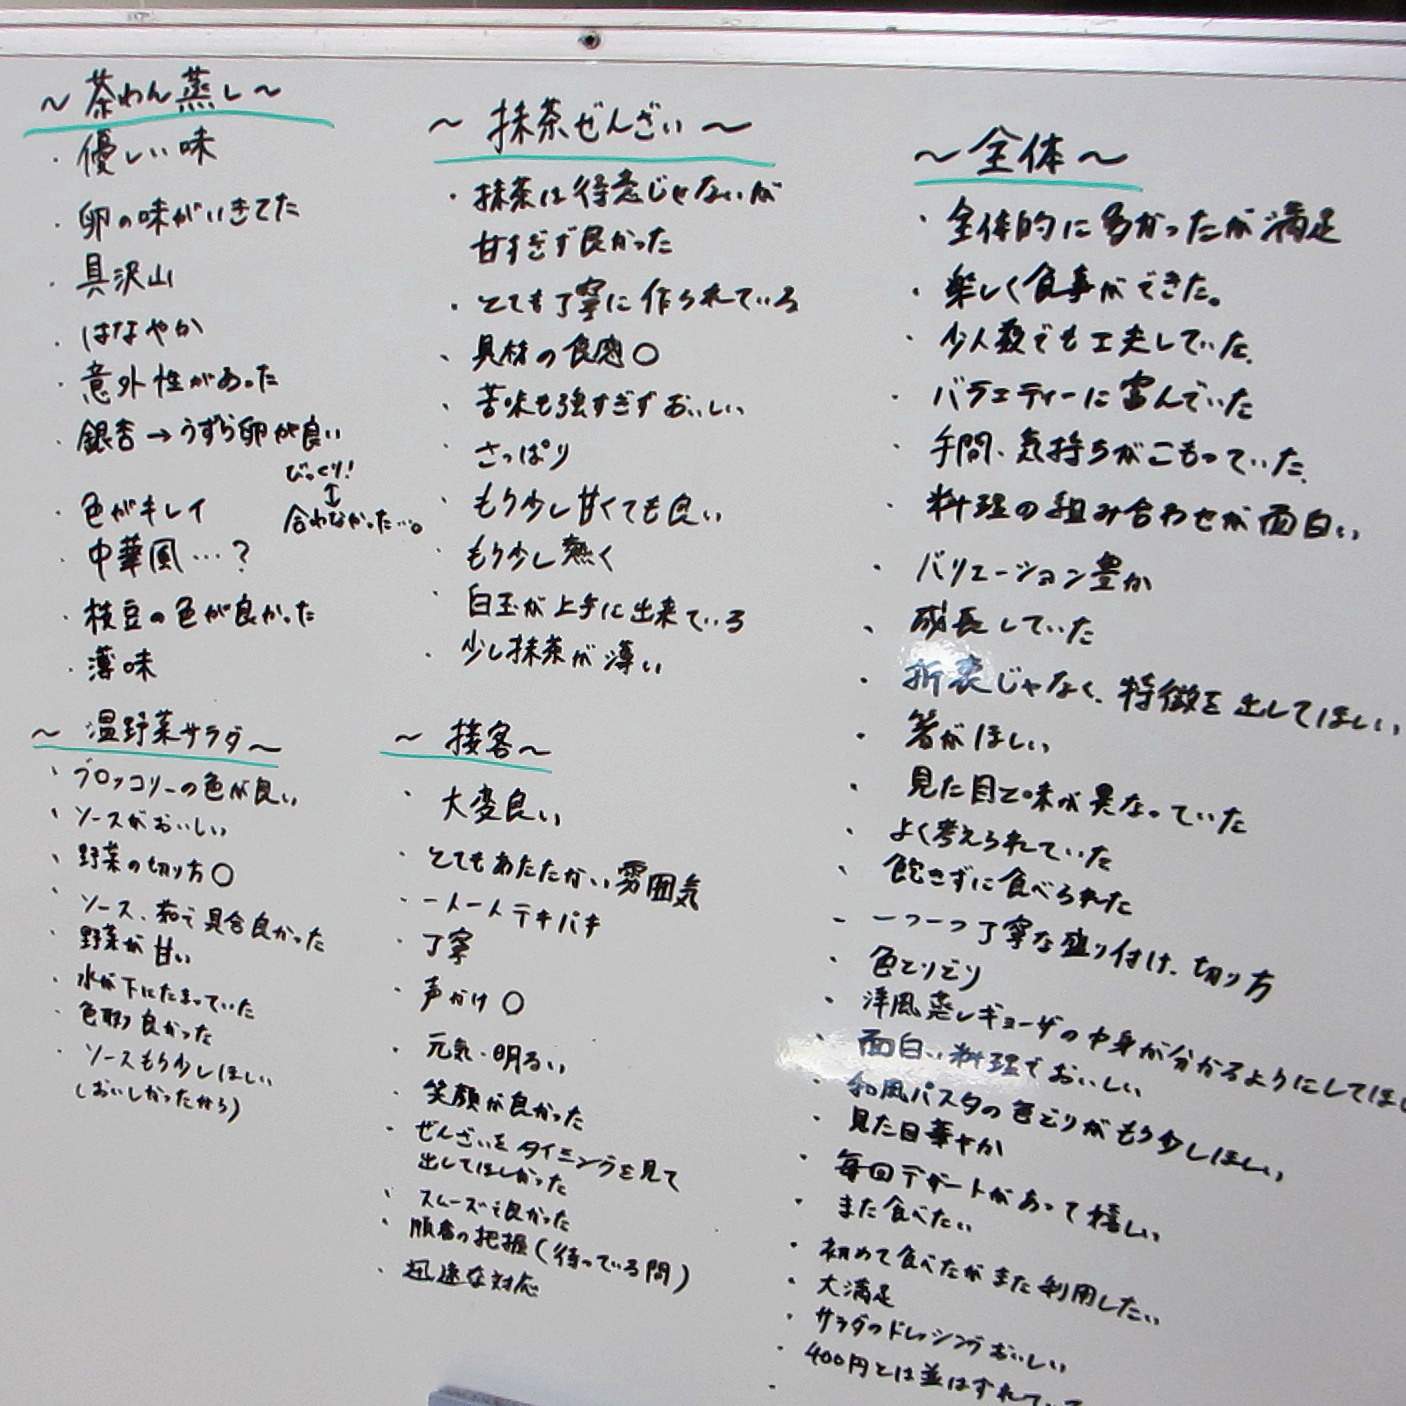 ～茶わん蒸し～
・優しい味
・卵の味がいきてた
・具沢山
・はなやか
・意外性があった
・銀杏→うずら卵が良い
びっくり!
↕
合わなかった…。
・色がキレイ
・中華風…?
・枝豆の色が良かった
・薄味
～温野菜サラダ～
・ブロッコリーの色が良い
・ソースがおいしい
・野菜の切り方○
・ソース、茹で具合良かった
・野菜が甘い
・水が下にたまっていた
・色取り良かった
・ソースもう少しほしい
(おいしかったから)
～抹茶ぜんざい～
・抹茶は得意じゃないが
甘すぎず良かった
・とても丁寧に作られている
・具材の食感○
・苦味も強すぎずおいしい
・さっぱり
・もう少し甘くても良い
・もう少し熱く
・白玉が上手に出来ている
・少し抹茶が薄い
～接客～
・大変良い
・とてもあたたかい雰囲気
・一人一人テキパキ
・丁寧
・声かけ○
・元気・明るい
・笑顔が良かった
・ぜんざいをタイミングを見て
出してほしかった
・スムーズで良かった
・順番の把握(待っている間)
・迅速な対応
～全体～
・全体的に多かったが満足
・楽しく食事ができた。
・少人数でも工夫していた。
・バラエティーに富んでいた
・手間、気持ちがこもっていた。
・料理の組み合わせが面白い
・バリエーション豊か
・成長していた
・折衷じゃなく、特徴を出してほしい
・箸がほしい
・見た目と味が異なっていた
・よく考えられていた
・飽きずに食べられた
・一つ一つ丁寧な盛り付け、切り方
・色とりどり
・洋風蒸しギョーザの中身が分かるようにしてほし
・面白い料理でおいしい
・和風パスタの色どりがもう少しほしい
・見た目華やか
・毎回デザートがあって嬉しい
・また食べたい
・初めて食べたがまた利用したい
・大満足
・サラダのドレッシングおいしい
・400円とは並はずれてい